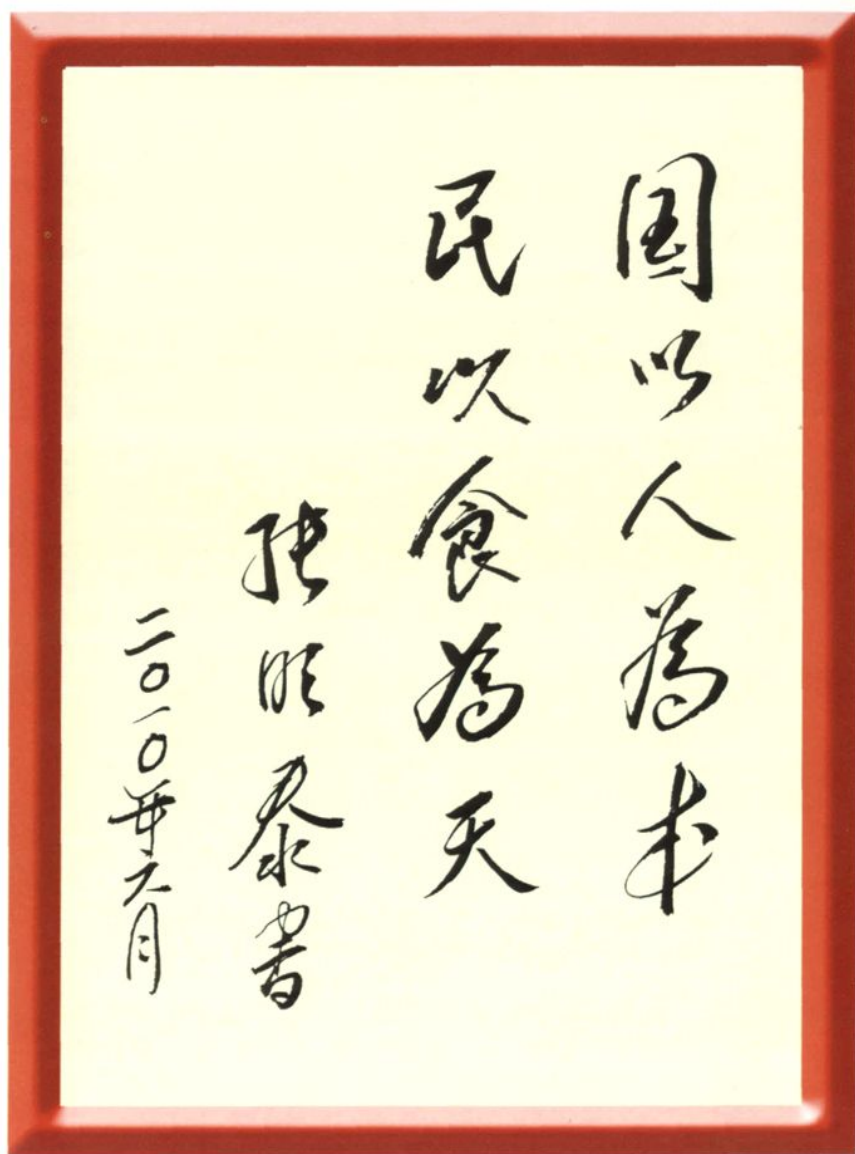 国以人為本
民以食為天
张明泰書
二〇一〇年六月